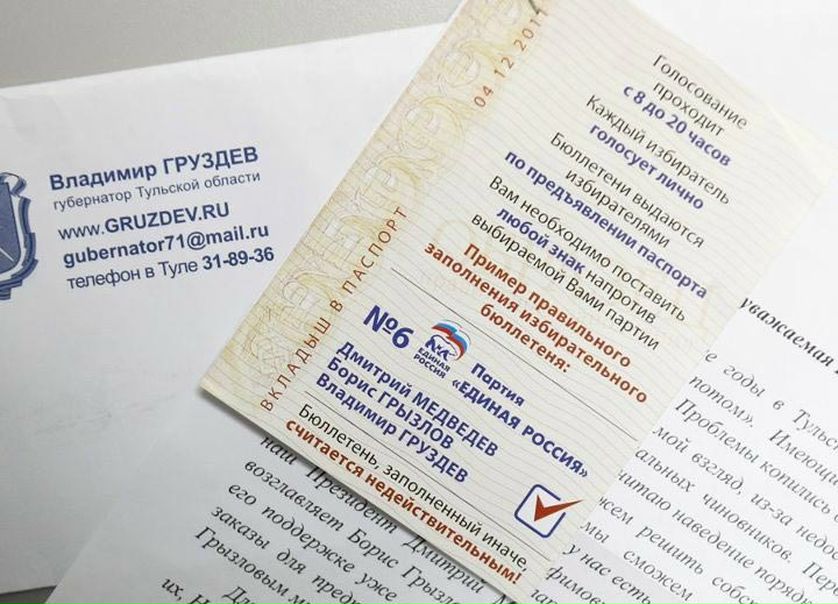 Владимир ГРУЗДЕВ
губернатор Тульской области
www.GRUZDEV.RU
gubernator71@mail.ru
телефон в Туле 31-89-36
ВКЛАДЫШ В ПАСПОРТ
04 12 2011
Голосование
проходит
с 8 до 20 часов
Каждый избиратель
голосует лично
Бюллетени выдаются
избирателями
по предъявлении паспорта
Вам необходимо поставить
любой знак напротив
выбираемой Вами партии
Пример правильного
заполнения избирательного
бюллетеня:
№6
ЕДИНАЯ
РОССИЯ
Партия
«ЕДИНАЯ РОССИЯ»
Дмитрий МЕДВЕДЕВ
Борис ГРЫЗЛОВ
Владимир ГРУЗДЕВ
Бюллетень, заполненный иначе,
считается недействительным!
уважаемая
годы в Тульс
потом». Имеющи
Проблемы копились
мой взгляд, из-за недос
альных чиновников. Пере
читаю наведение порядк
жем решить собс
мы сможем
у нас есть
наш Президент Дмитрий М
возглавляет Борис Грызл
его поддержке уже
заказы для предп
Грызловым м
Для
их, Н